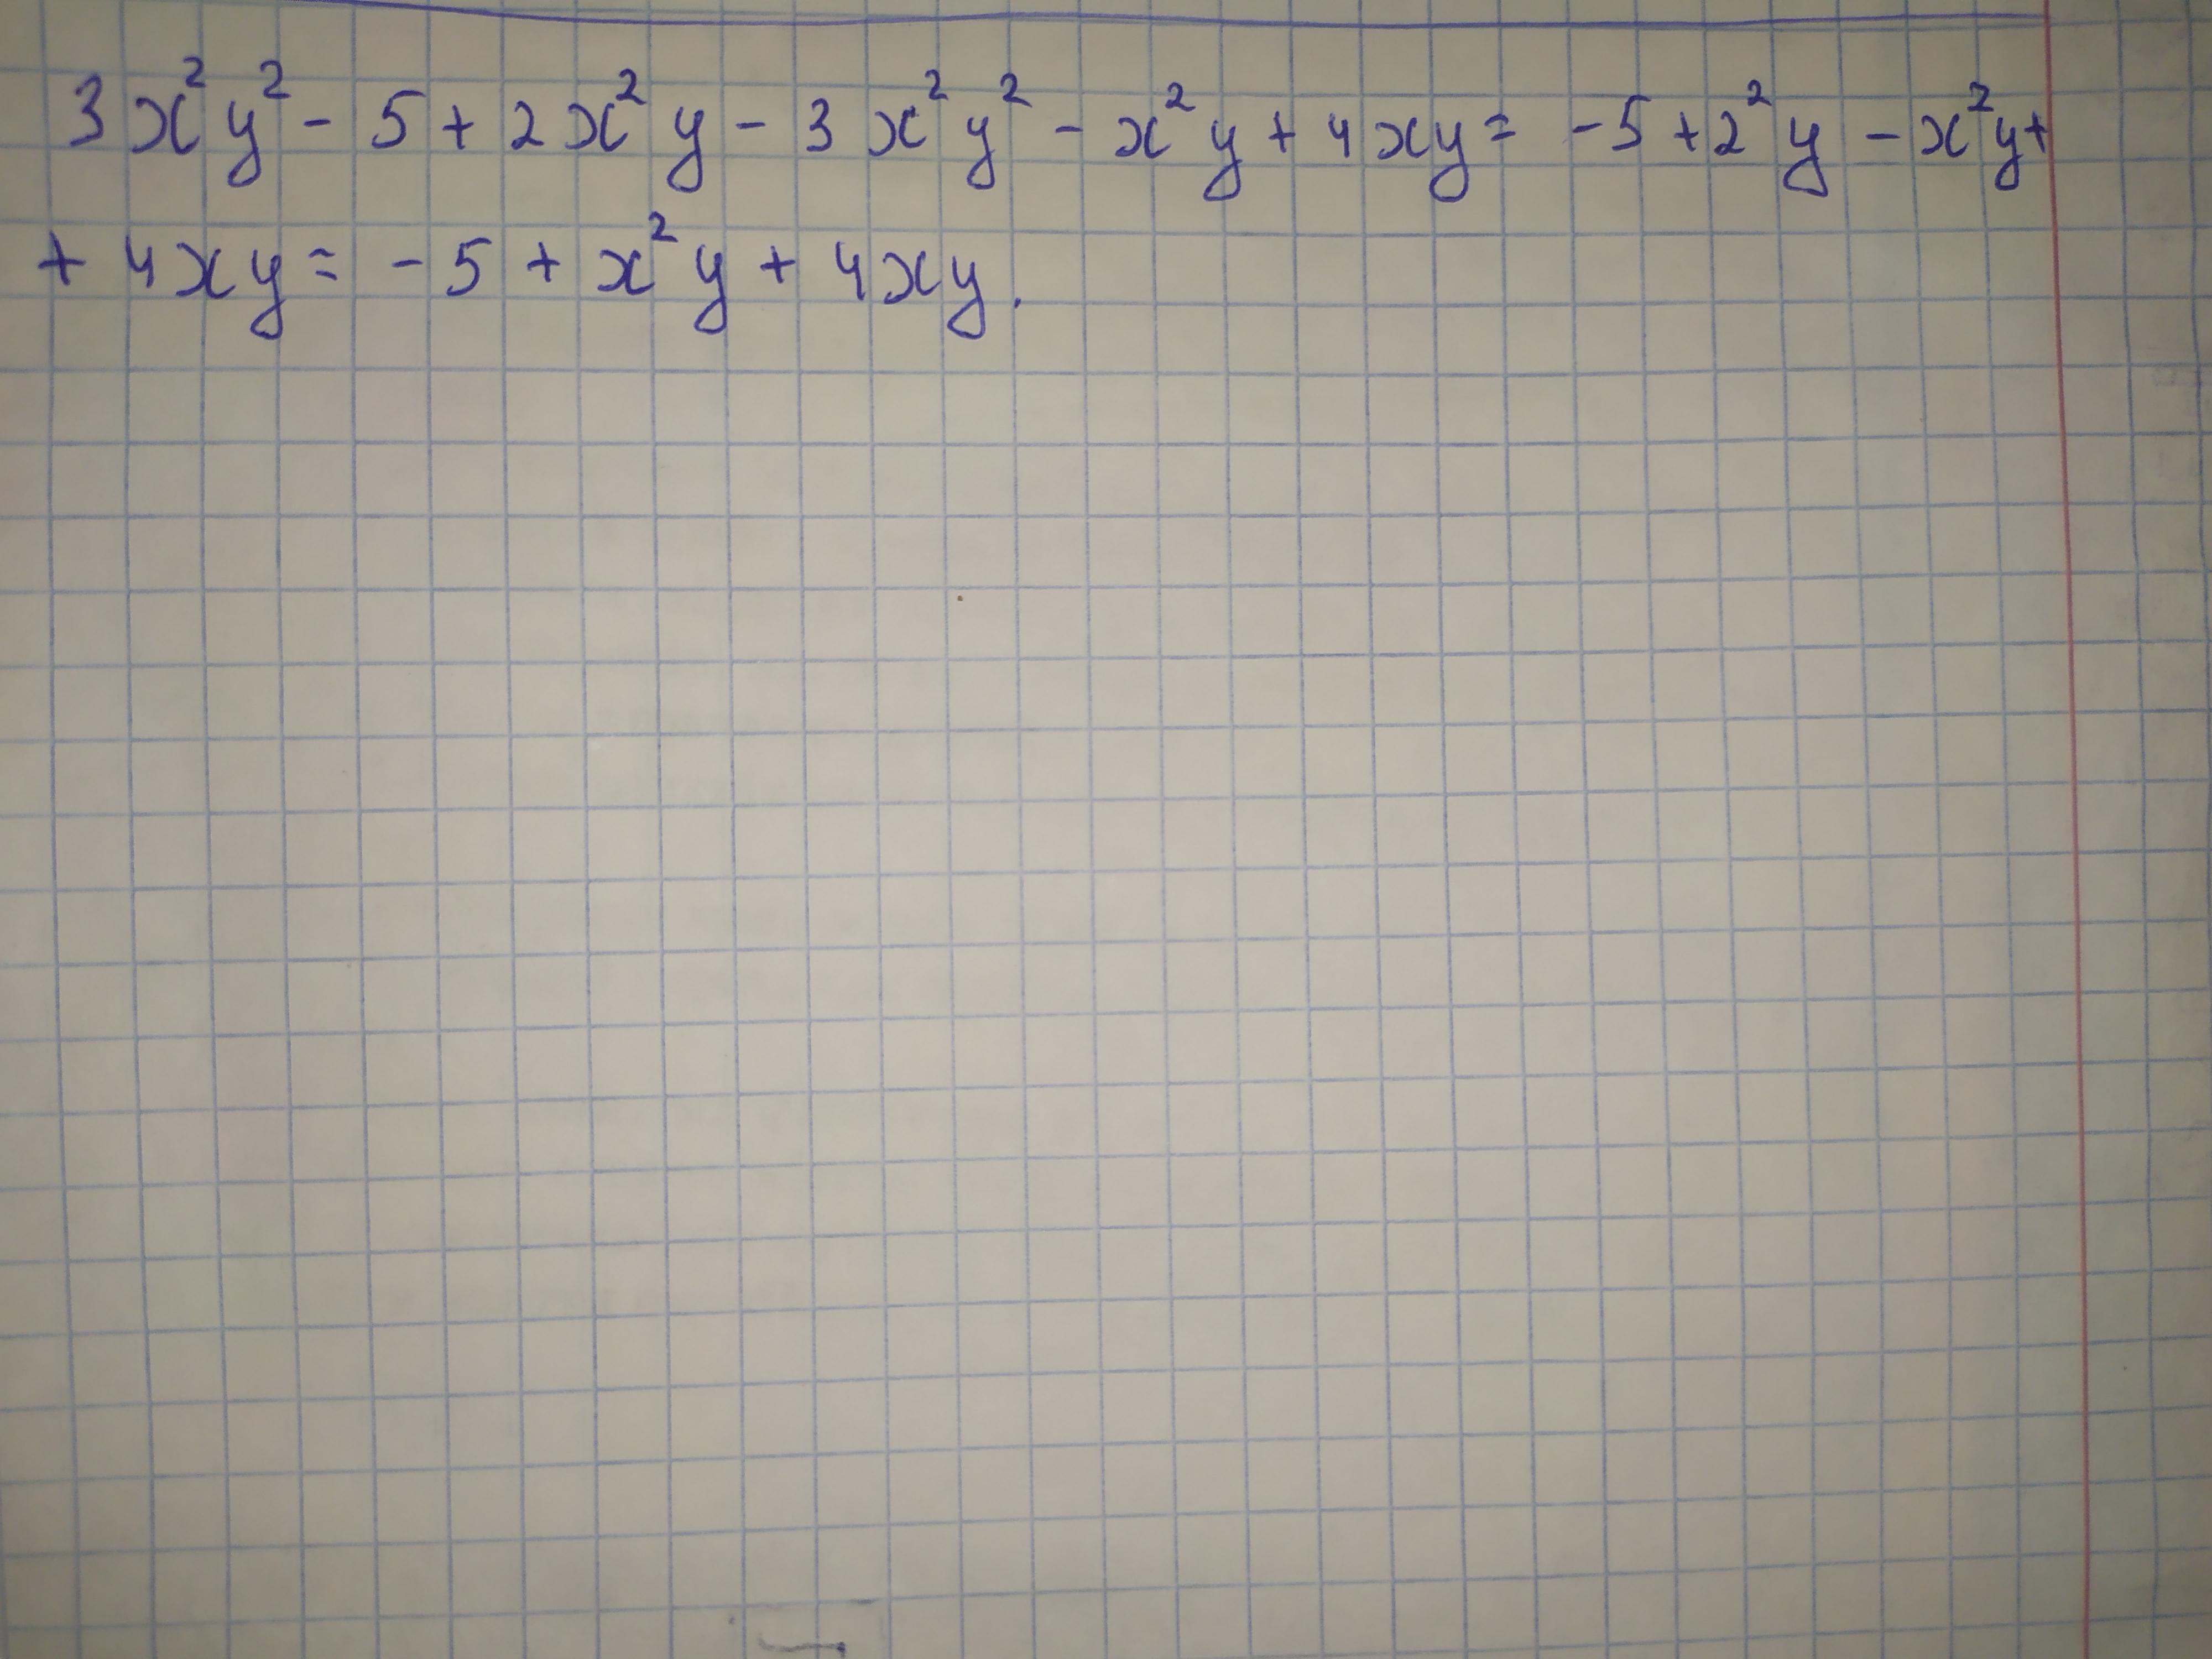 3x²y² - 5 + 2x²y - 3x²y² - x²y + 4xy = -5 + 2²y - x²y +
+ 4xy = -5 + x²y + 4xy.